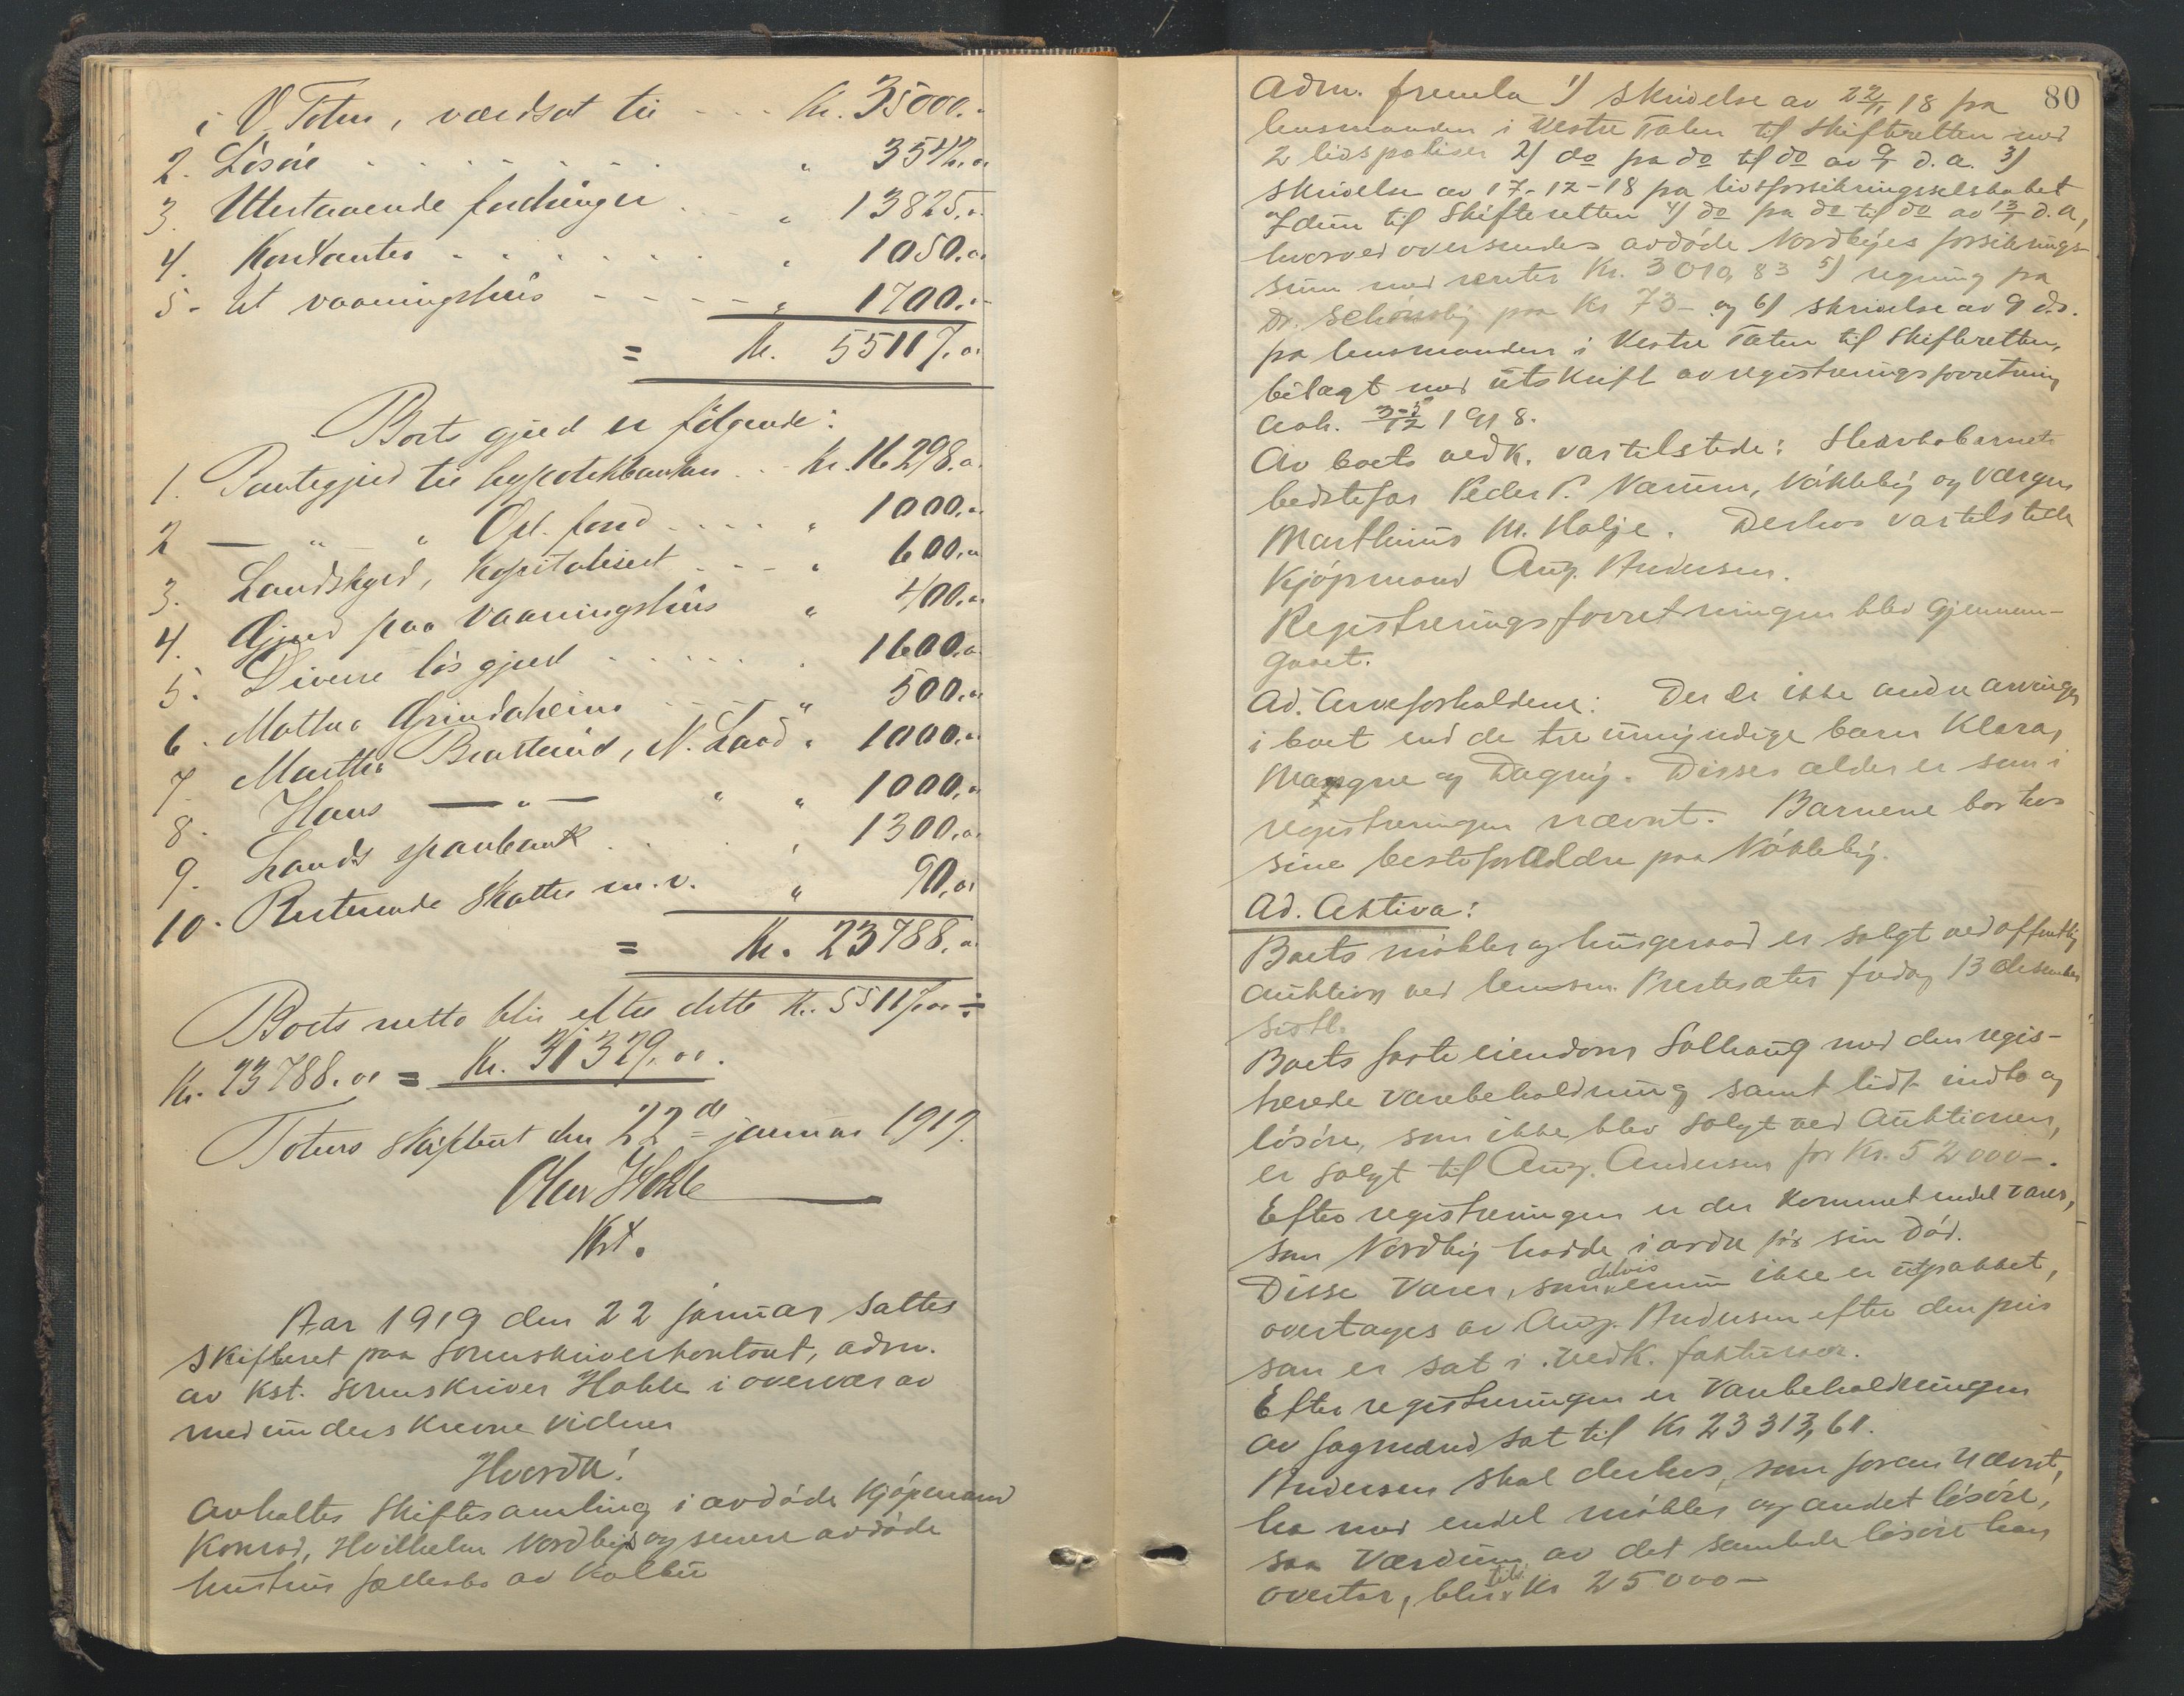 i V. Toten, værdsat til - - - Kr. 35000.-
2. Lösöre . . . . . . . „ 3542.00
3. Utestaaende fordringer . - - „ 13825.00
4. Kontanter . . . . . . . „ 1050.00
5. Et vaaningshus - - - - - „ 1700.-
= Kr. 55117.00
Boets gjæld er følgende:
1. Pantegjæld til hypotekbanken . . Kr. 16298.00
2 — „ — „ Opl. fond . . . . „ 1000.00
3. Landskyld, kapitalisert . . - - „ 600.00
4. Gjæld paa vaaningshus „ 400.00
5. Diverse løs gjæld . . . . . . . 1600.00
6. Mathea Grindaheim . . . . „ 500.00
7. Marthe Brastad, N. Land „ 1000.00
8. Hans — „ — „ „ 1000.00
9. Lands sparebank . . . . . , 1300.00
10. Resterende skatter m.v. „ 90.00
= Kr. 23788.00
Boets netto blir efter dette Kr. 55117.00 ÷
Kr. 23788.00 = Kr. 31329.00.
Totens skifteret den 22de januar 1919.
Olav Hokle
Kst.
Aar 1919 den 22 januar sattes
Skifteret paa Sorenskriverkontoret, adm.
av Kst. Sorenskriver Hokle i overvær av
medunderskrevne vidner
Hvorda!
avholtes skiftesamling i avdøde Kjøpmand
Konrad, Hvilhelm Nordbys og senere avdøde
hustrus fællesbo av Kolbu
80
Adm. fremla 1) skrivelse av 22/11 18 fra
lensmanden i Vestre Toten til Skifteretten med
2 livspoliser 2) do fra do til do av 9/1 d.a. 3)
skrivelse av 17-12-18 fra livsforsikringsselskabet
Idun til Skifteretten 4) do fra do til do av 13/1 d.a,
hvorved oversendes avdøde Nordbyes forsikrings-
sum med renter Kr. 3010,83 5) regning fra
Dr. paa Kr 73- og 6) skrivelse av 9 ds.
fra lensmanden i Vestre Toten til Skifteretten,
bilagt med utskrift av registreringsforretning
avh. 3-5/12 1918.
Av boets vedk. var tilstede: Stervbobarnets
bedstefar Peder P. Narum, Nøkleby og Værgen
Marthinus M. Halje. Derhos var tilstede
Kjøpmand Aug. Andersen.
Registreringsforretningen blev gjennem-
gaaet.
Ad. Arveforholdene: Der er ikke andre arvinger
i boet end de tre umyndige barn Klara,
Magne og Dagny. Disses alder er som i
registreringen nævnt. Barnene bor hos
sine besteforældre paa Nøkleby.
Ad. Aktiva:
Boets møbler og husgeraad er solgt ved offentlig
auktion ved lensm. Prestesæter fredag 13 desember
sistl.
Boets faste eiendom Solhaug med den regis-
trerede varebeholdning samt lidt indbo og
løsøre, som ikke blev solgt ved Auktionen,
er solgt til Aug. Andersen for Kr. 52000-.
Efter registreringen er der kommet endel varer,
som Nordby hadde i ordre før sin død.
Disse Varer, som delvis ennu ikke er utpakket,
overtages av Aug. Andersen efter den pris
som er sat i vedk. fakturaer.
Efter registreringen er Varebeholdningen
av fagmænd sat til Kr 23313,61.
Andersen skal derhos, som foran nævnt,
ha med endel møbler og andet løsøre,
saa Værdien av det samlede løsøre han
overtar, blir tils. Kr 25000-